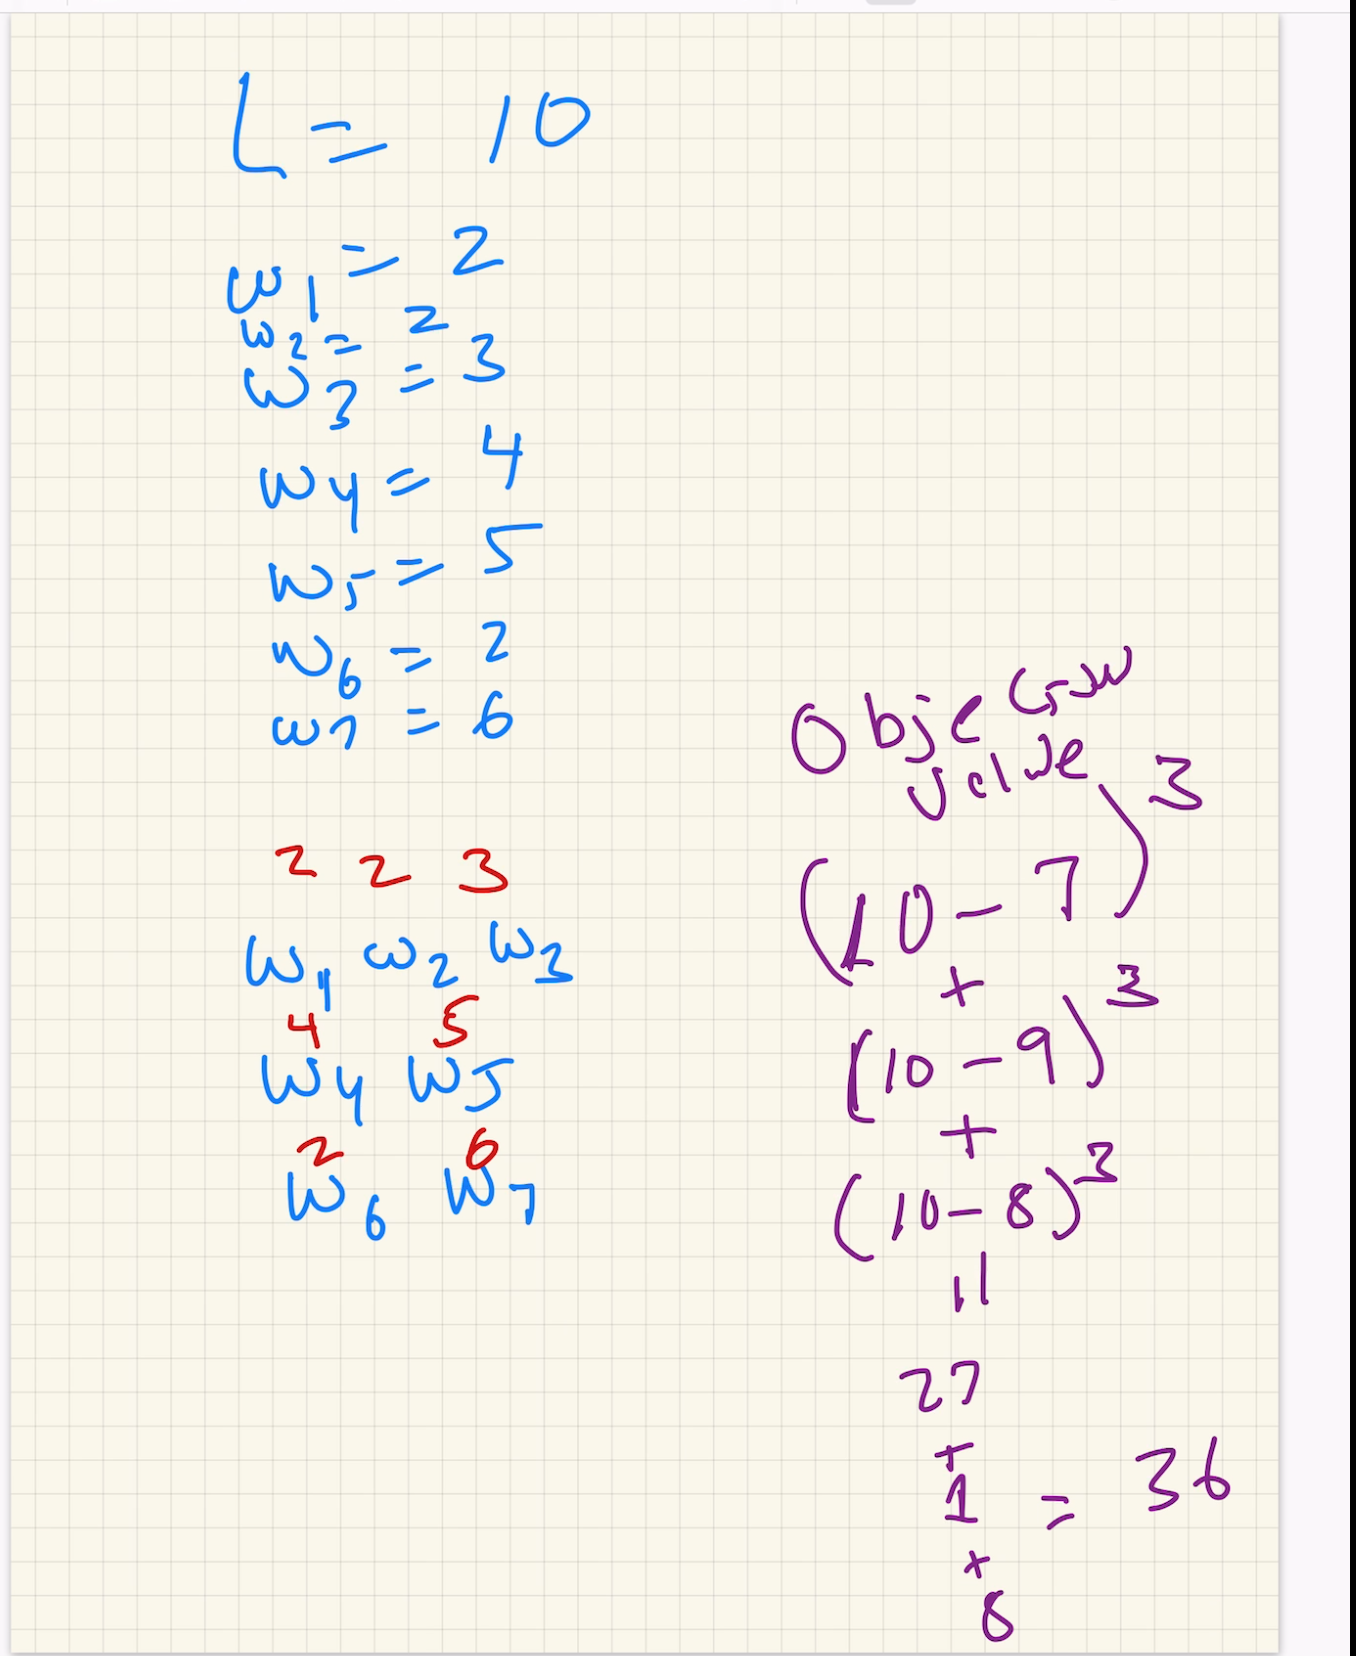 L = 10
w1 = 2
w2 = 2
w3 = 3
w4 = 4
w5 = 5
w6 = 2
w7 = 6
2 2 3
w1 w2 w3
4 5
w4 w5
2 6
w6 w7
value
(10 - 7)^3
+
(10 - 9)^3
+
(10 - 8)^3
=
27
+
1 = 36
+
8